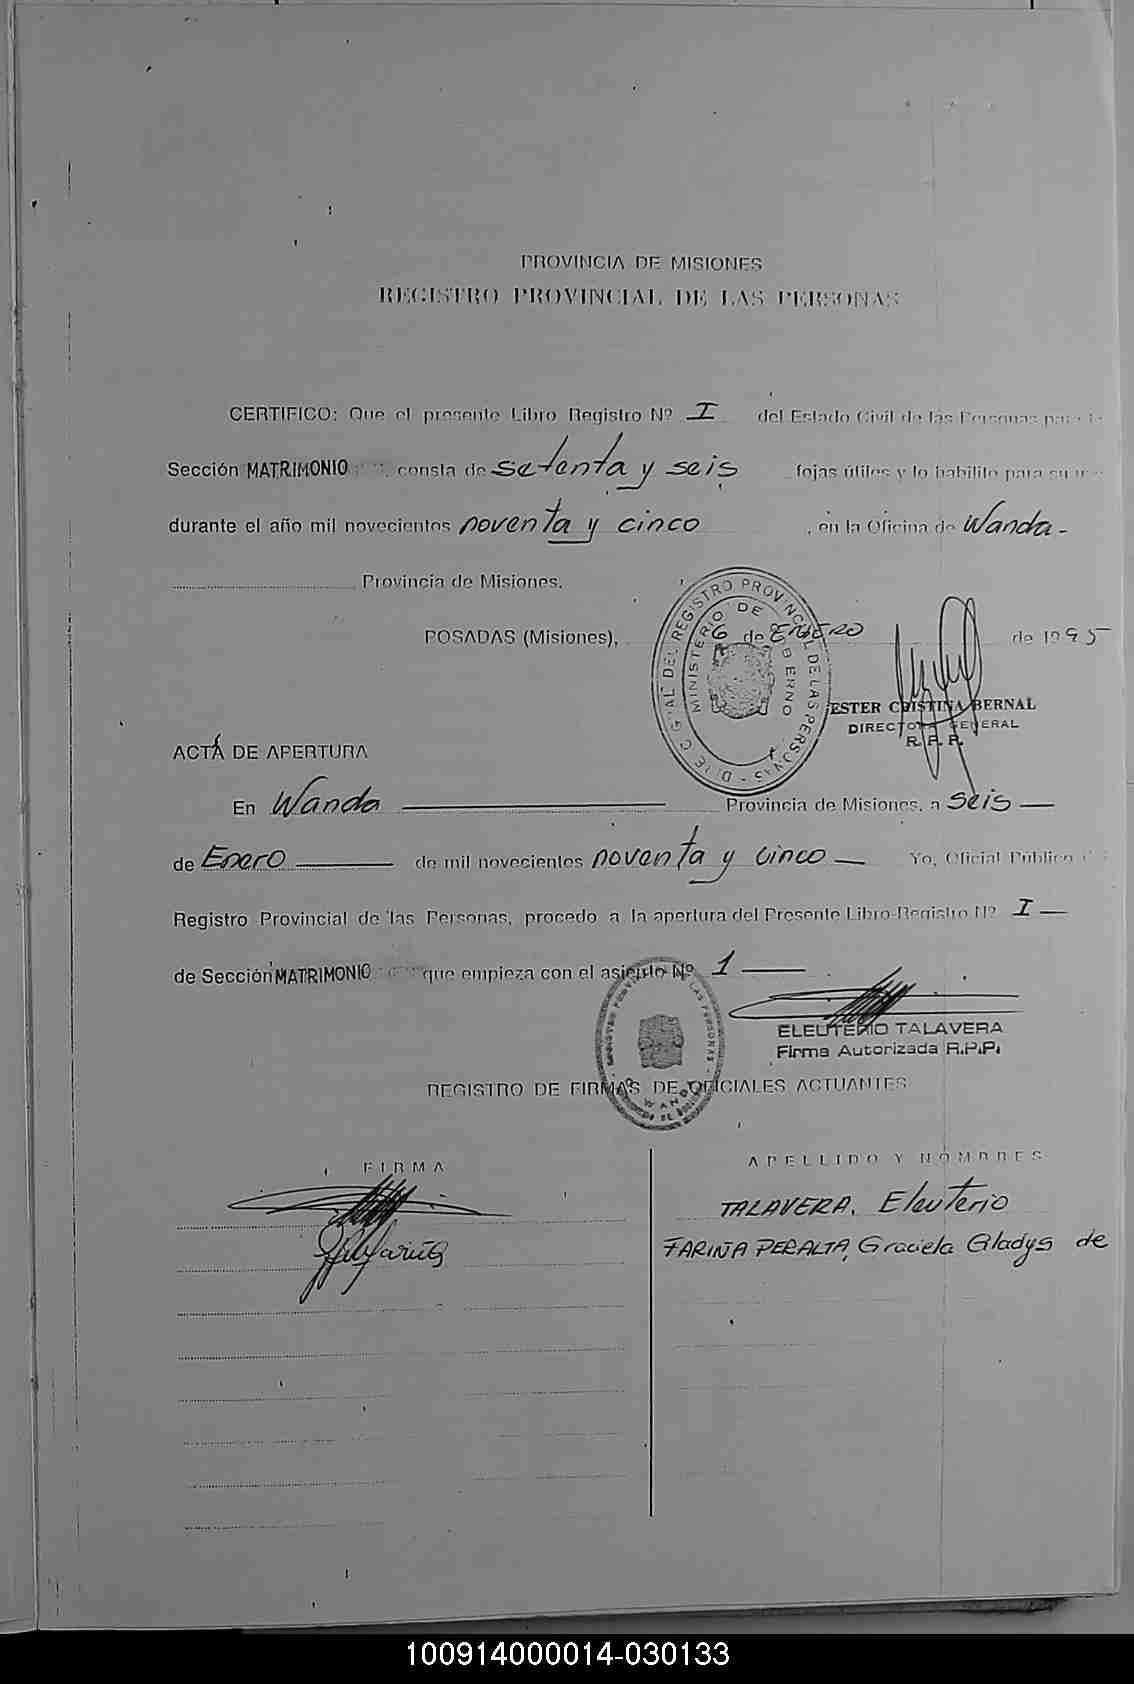 PROVINCIA DE MISIONES
REGISTRO PROVINCIAL DE LAS PERSONAS
CERTIFICO: Que el presente Libro Registro Nº I del Estado Civil de las Personas para
Sección MATRIMONIO consta de setenta y seis fojas útiles y lo habilito para su
durante el año mil novecientos noventa y cinco, en la Oficina de Wanda -
Provincia de Misiones.
POSADAS (Misiones), 6 de ENERO de 1995
DIREC. GRAL DEL REGISTRO PROVINCIAL DE LAS PERSONAS
MINISTERIO DE GOBIERNO
ESTER CRISTINA BERNAL
DIRECTORA GENERAL
R. P. P.
ACTA DE APERTURA
En Wanda Provincia de Misiones, a seis
de Enero de mil novecientos noventa y cinco Yo, Oficial Público
Registro Provincial de las Personas, procedo a la apertura del Presente Libro-Registro Nº I
de Sección MATRIMONIO que empieza con el asiento Nº 1
ELEUTERIO TALAVERA
Firma Autorizada R.P.P.
WANDA
REGISTRO DE FIRMAS DE OFICIALES ACTUANTES
FIRMA APELLIDO Y NOMBRES
TALAVERA, Eleuterio
FARIÑA PERALTA, Graciela Gladys de
100914000014-030133